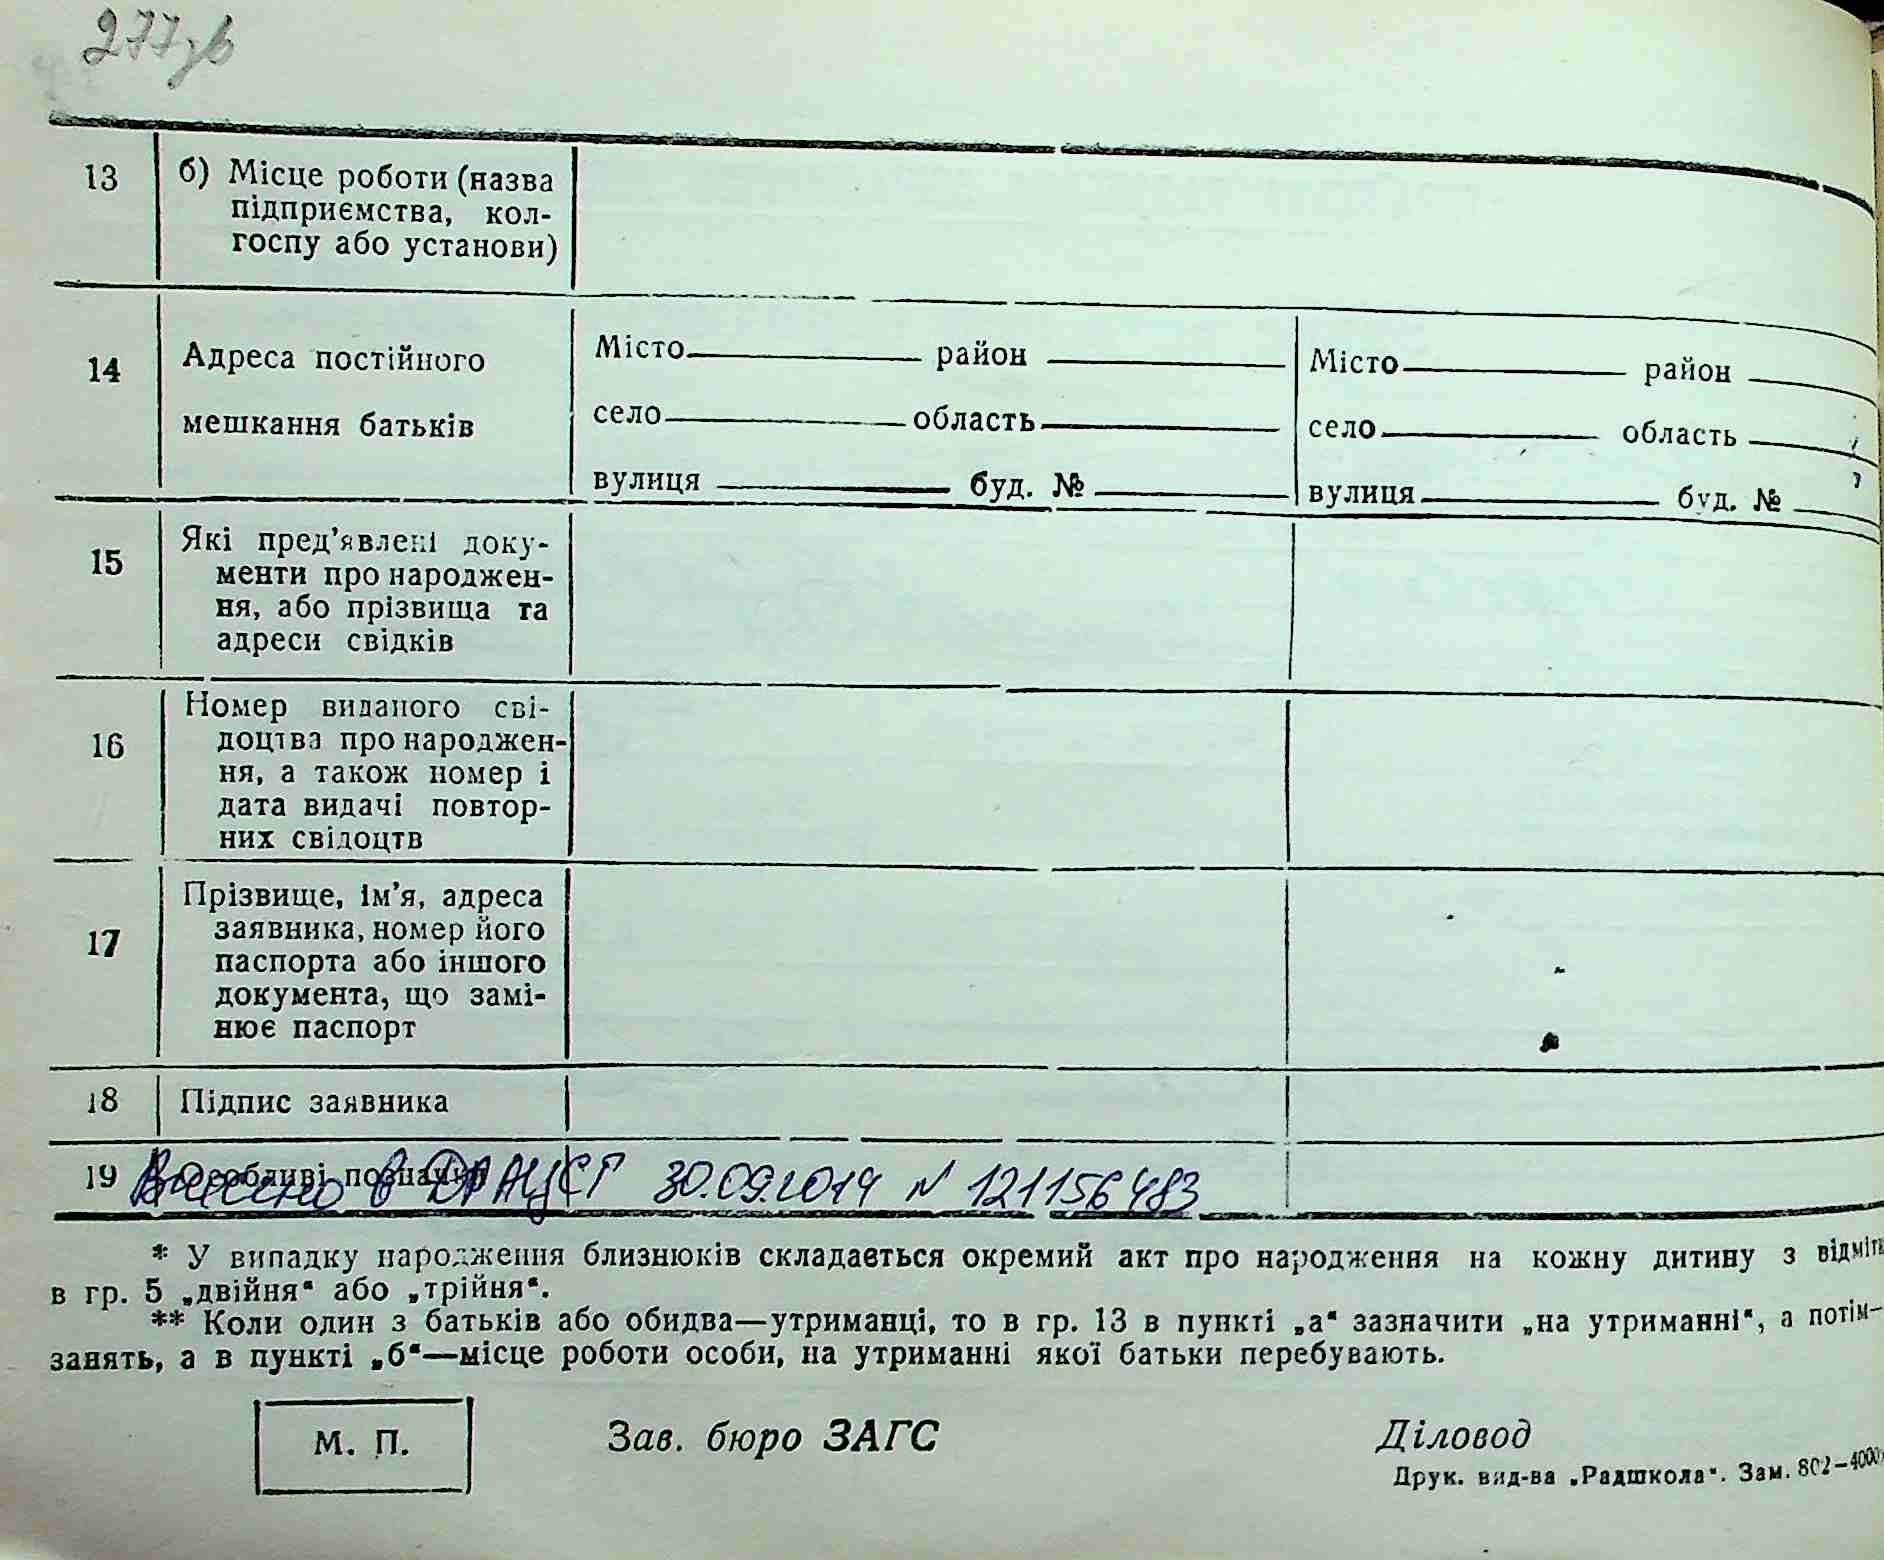 277зв
13
б) Місце роботи (назва
підприємства, кол-
госпу або установи)
14
Адреса постійного
мешкання батьків
Місто район
село область
вулиця буд. №
Місто район
село область
вулиця буд. №
15
Які пред’явлені доку-
менти про народжен-
ня, або прізвища та
адреси свідків
16
Номер виданого сві-
доцтва про народжен-
ня, а також номер і
дата видачі повтор-
них свідоцтв
17
Прізвище, ім’я, адреса
заявника, номер його
паспорта або іншого
документа, що замі-
нює паспорт
18
Підпис заявника
19
Особливі познаки
Внесено в ДРАЦСГ 30.09.2014 N 121156483
* У випадку народження близнюків складається окремий акт про народження на кожну дитину з відмітк
в гр. 5 „двійня“ або „трійня“.
** Коли один з батьків або обидва—утриманці, то в гр. 13 в пункті „а“ зазначити „на утриманні“, а потім—
занять, а в пункті „б“—місце роботи особи, на утриманні якої батьки перебувають.
М. П.
Зав. бюро ЗАГС
Діловод
Друк. вид-ва „Радшкола“. Зам. 802—4000